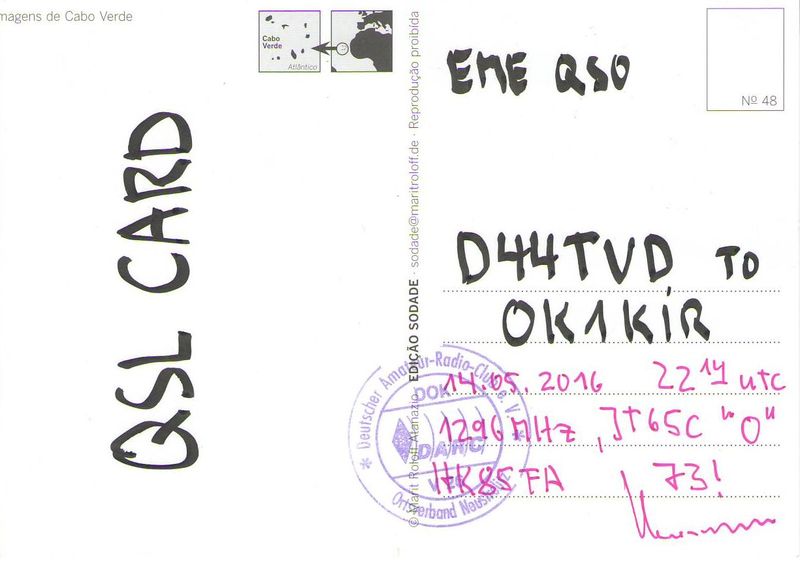 magens de Cabo Verde
Cabo
Verde
Atlântico
Nº 48
QSL CARD
© Marit Roloff Atanazio · EDIÇÃO SODADE · sodade@maritroloff.de · Reprodução proibida
EME QSO
D44TVD TO
OK1KIR
14.05.2016 22 14 utc
1296 MHz, JT65C "O"
HK85TA 73!
* Deutscher Amateur-Radio-Club e. V. *
DOK
DARC
Ortsverband